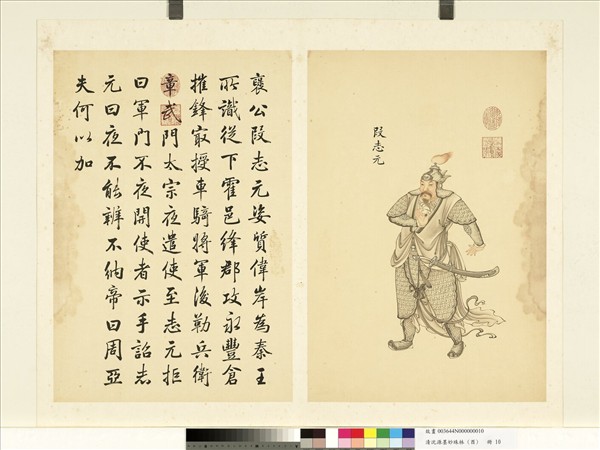 段志元
襄公段志元姿質偉岸為秦王
所識從下霍邑絳郡攻永豐倉
摧鋒㝡授車騎將軍後勒兵衛
章武門太宗夜遣使至志元拒
曰軍門不夜開使者示手詔志
元曰夜不能辨不納帝曰周亞
夫何以加
故畫 003644N000000010
清沈源墨妙珠林 冊 10